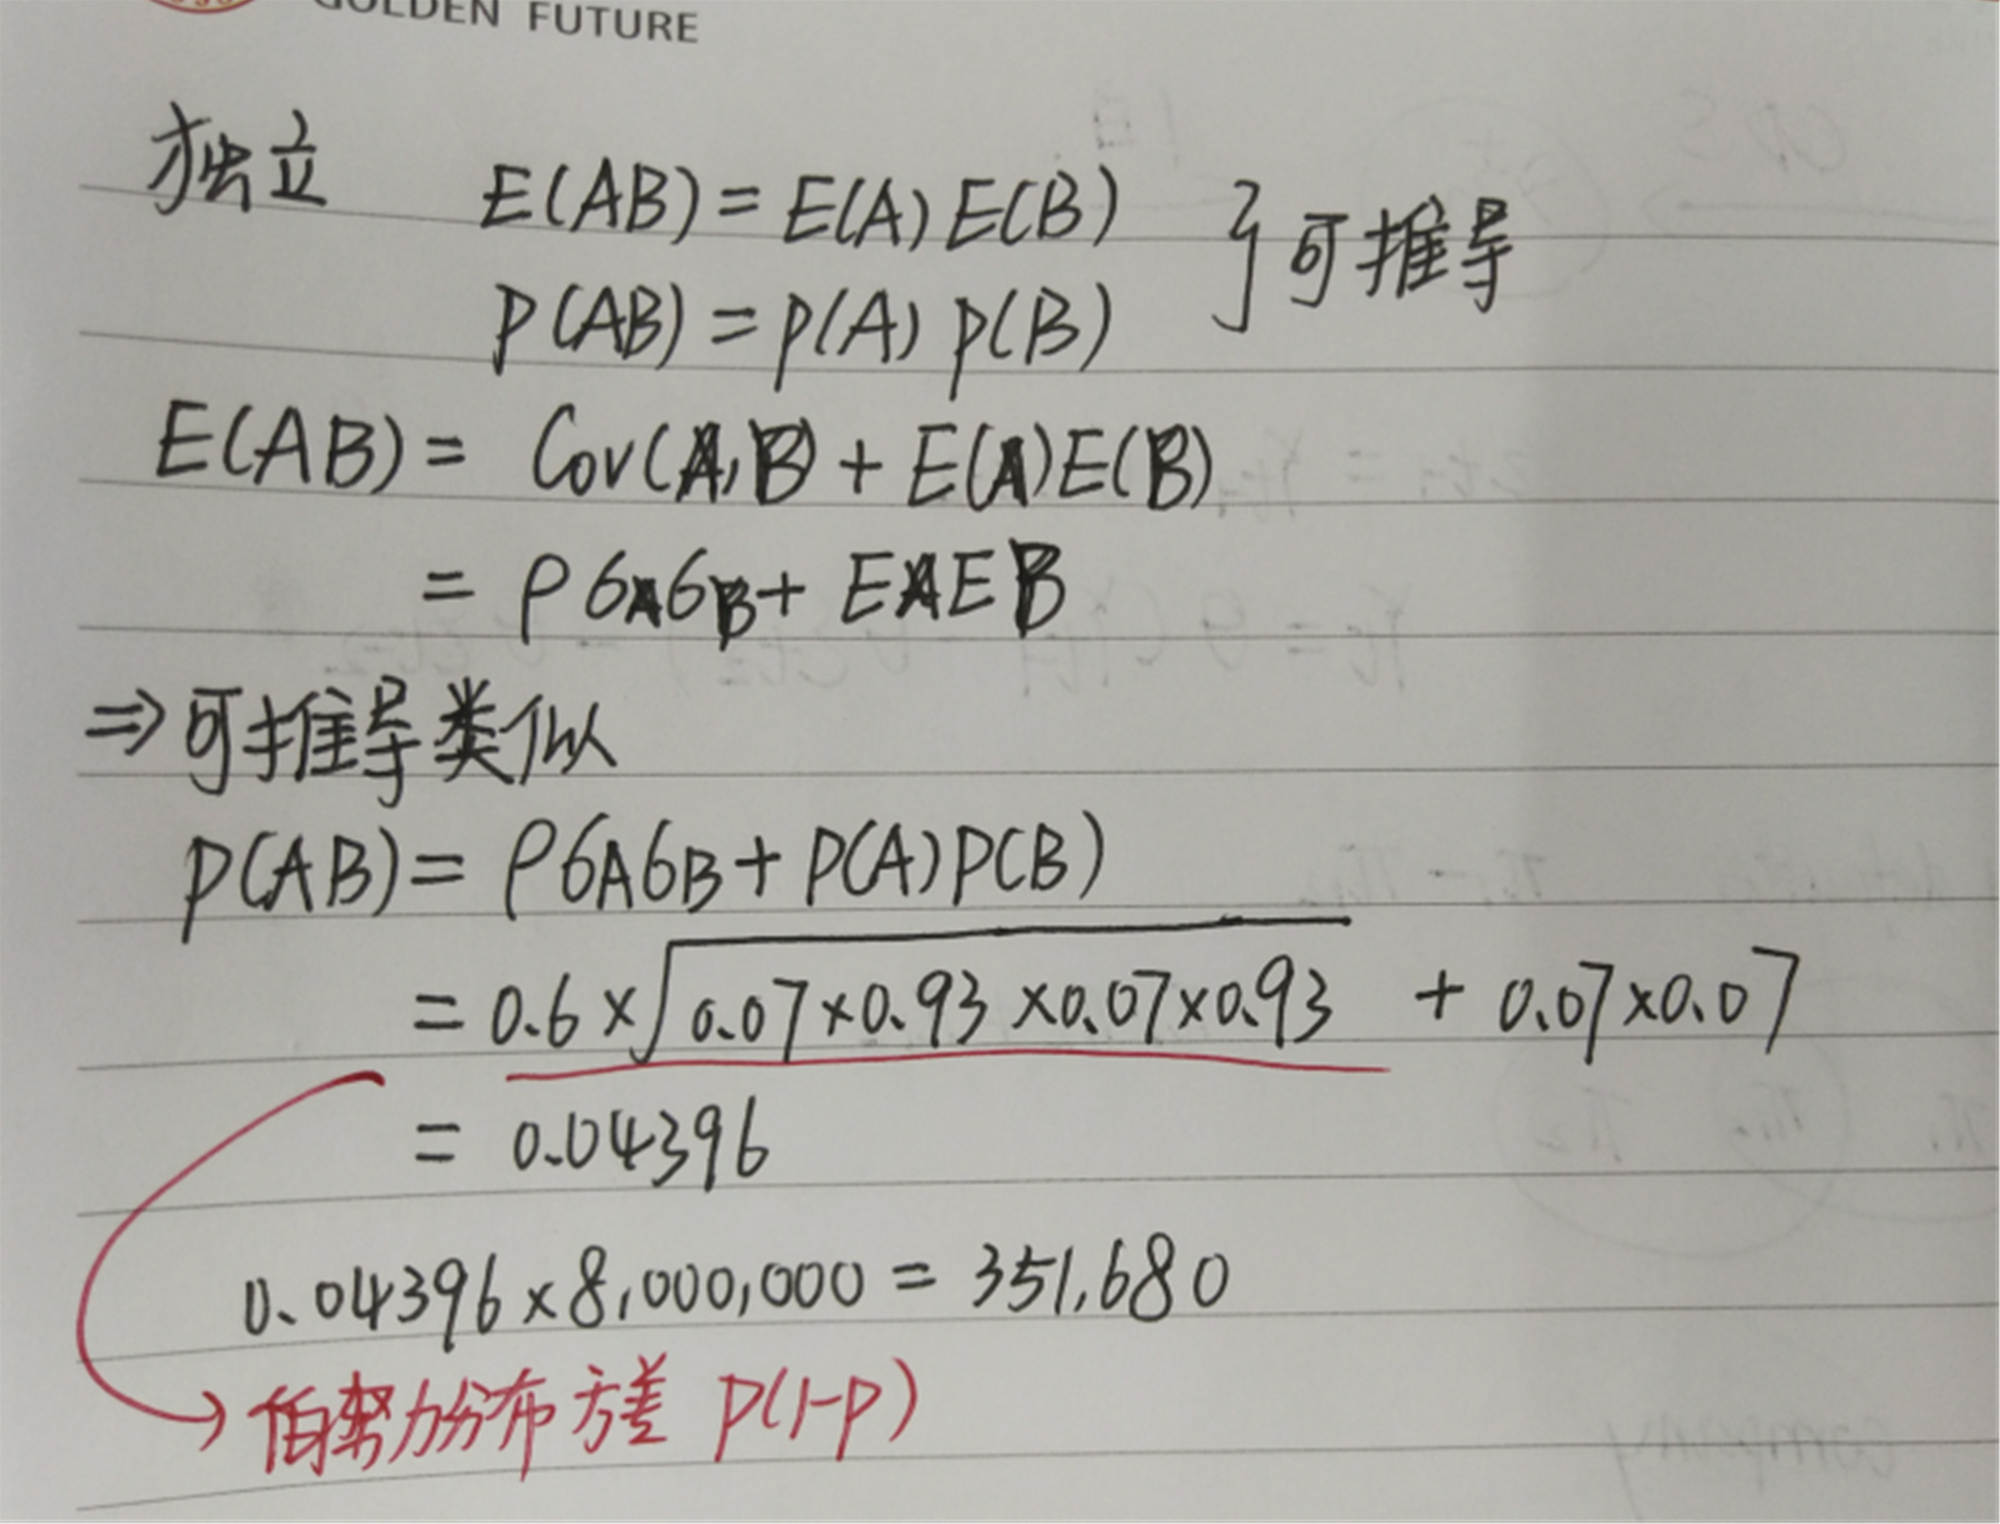 GOLDEN FUTURE
独立 E(AB) = E(A) E(B)
P(AB) = P(A) P(B)
} 可推导
E(AB) = Cov(A,B) + E(A)E(B)
= ρσAσB + EAEB
⇒ 可推导类似
P(AB) = ρσAσB + P(A)P(B)
= 0.6 × √0.07×0.93×0.07×0.93 + 0.07×0.07
= 0.04396
0.04396 × 8,000,000 = 351,680
→ 伯努力分布方差 P(1-P)